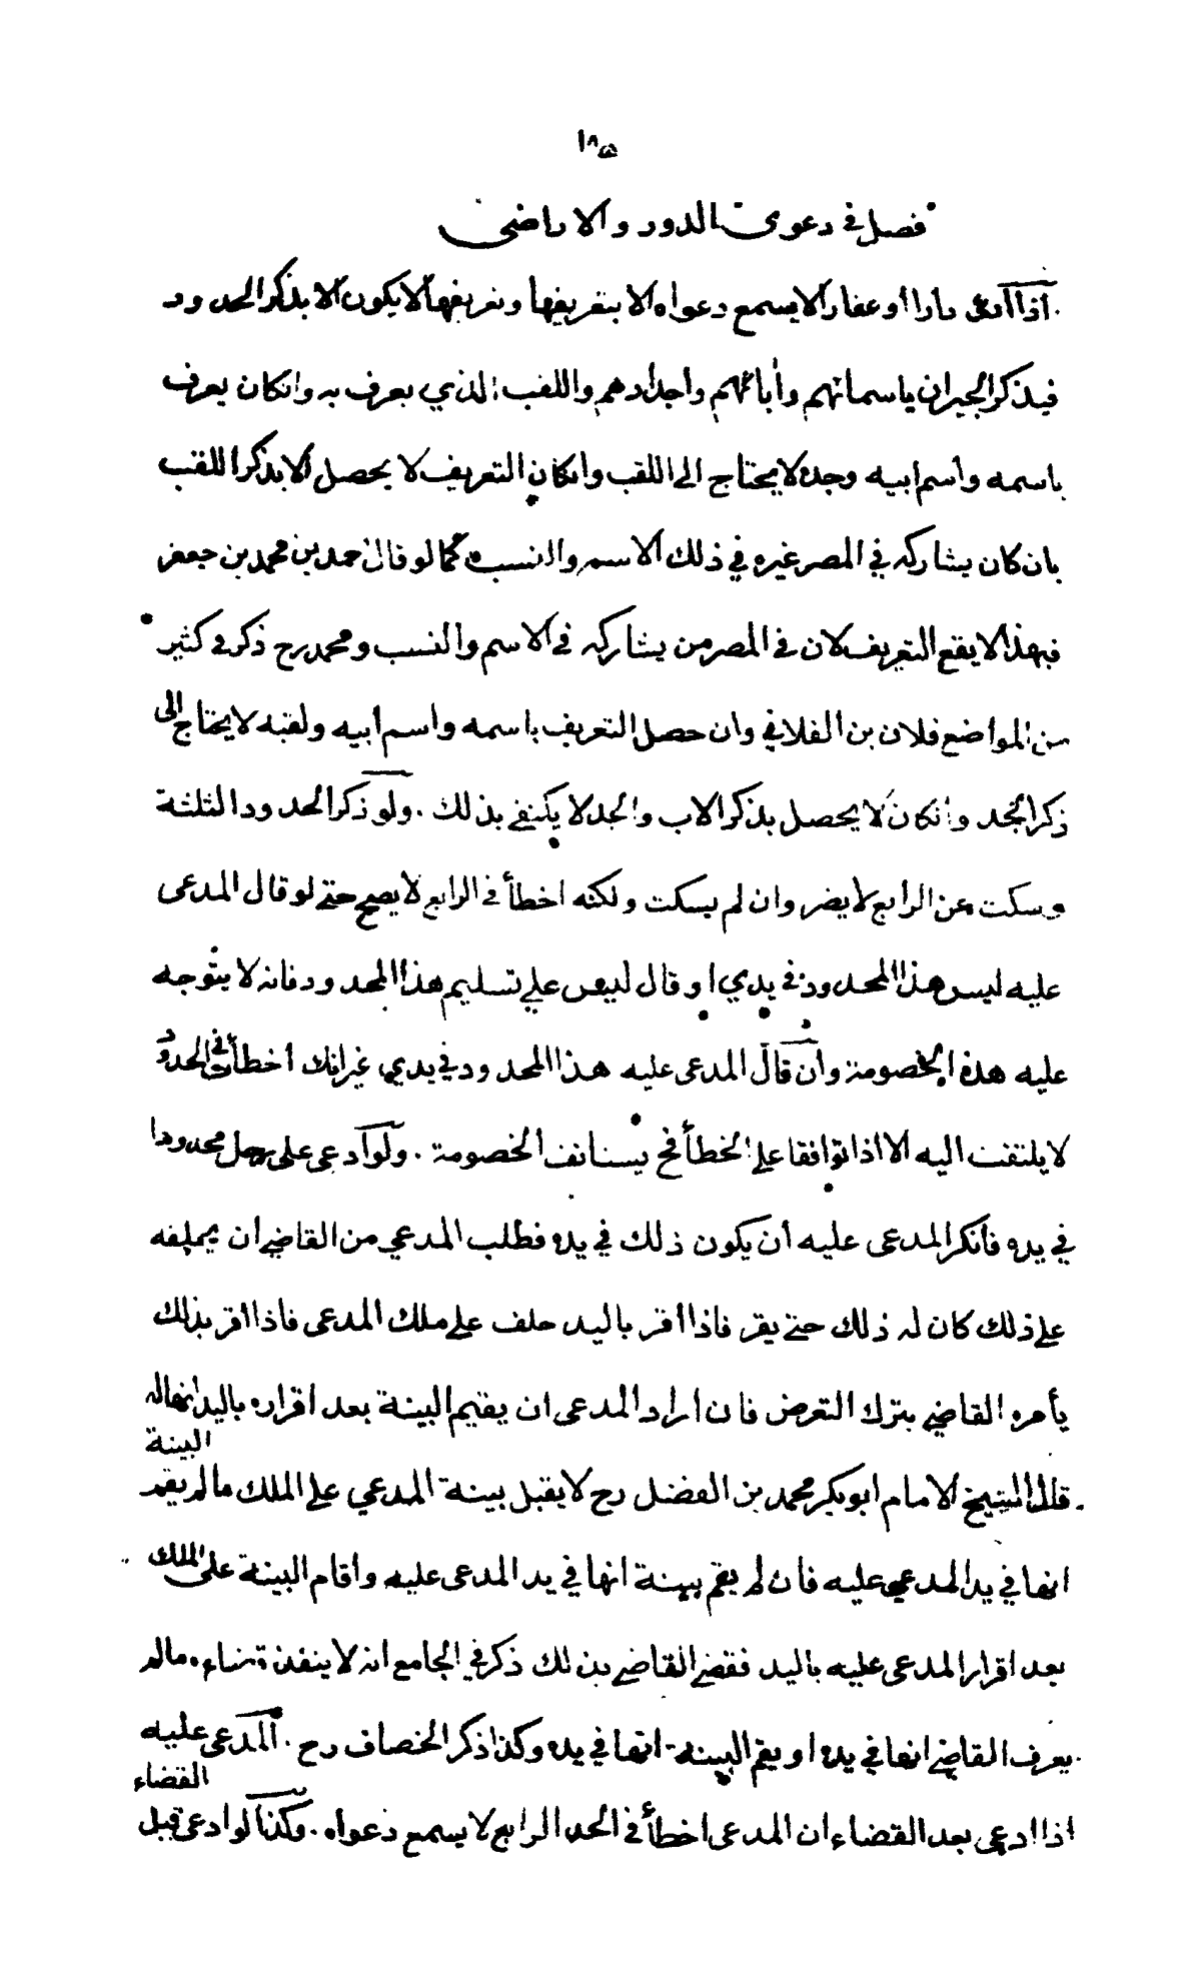 ١٨٥
فصل في دعوى الدور والاراضي
اذا ادعى دارا او عقارا لا يسمع دعواه الا بتعريفها وتعريفها لا يكون الا بذكر الحدود
فيذكر الجيران باسمائهم وأبائهم واجدادهم واللقب الذي يعرف به وانكان يعرف
باسمه واسم ابيه وجده لا يحتاج الى اللقب وانكان التعريف لا يحصل الا بذكر اللقب
بان كان يشاركه في المصر غيره في ذلك الاسم والنسب كما لو قال احمد بن محمد بن جعفر
فبهذا لا يقع التعريف لان في المصر من يشاركه في الاسم والنسب ومحمد رح ذكر في كثير
من المواضع فلان بن الفلاني وان حصل التعريف باسمه واسم أبيه ولقبه لا يحتاج الى
ذكر الجد وانكان لا يحصل بذكر الاب والجد لا يكتفى بذلك . ولو ذكر الحدود الثلثة
وسكت عن الرابع لا يضر وان لم يسكت ولكنه اخطأ في الرابع لا يصح حتى لو قال المدعى
عليه ليس هذا المحدود في يدي او قال ليس علي تسليم هذا المحدود فانه لا يتوجه
عليه هذه الخصومة وان قال المدعى عليه هذا المحدود في يدي غير انك اخطأت في الحدود
لا يلتفت اليه الا اذا توافقا على الخطأ فح يستانف الخصومة . ولو ادعى على رجل محدودا
في يده فأنكر المدعى عليه أن يكون ذلك في يده فطلب المدعي من القاضي أن يحلفه
على ذلك كان له ذلك حتى يقر فاذا أقر باليد حلف على ملك المدعى فاذا اقر بذلك
يأمره القاضي بترك التعرض فان اراد المدعى ان يقيم البينة بعد اقراره باليد انها له
البينة
قال الشيخ الامام ابو بكر محمد بن الفضل رح لا يقبل بينة المدعي على الملك ما لم يقم
انها في يد المدعى عليه فان لم يقم بينة انها في يد المدعى عليه واقام البينة على الملك
بعد اقرار المدعى عليه باليد فقضى القاضي بذلك ذكر في الجامع انه لا ينفذ قضاءه ما لم
يعرف القاضي انها في يده او يقم البينة انها في يده وكذا ذكر الخصاف رح . المدعى عليه
القضاء
اذا ادعى بعد القضاء ان المدعى اخطأ في الحد الرابع لا يسمع دعواه . وكذا لو ادعى قبل